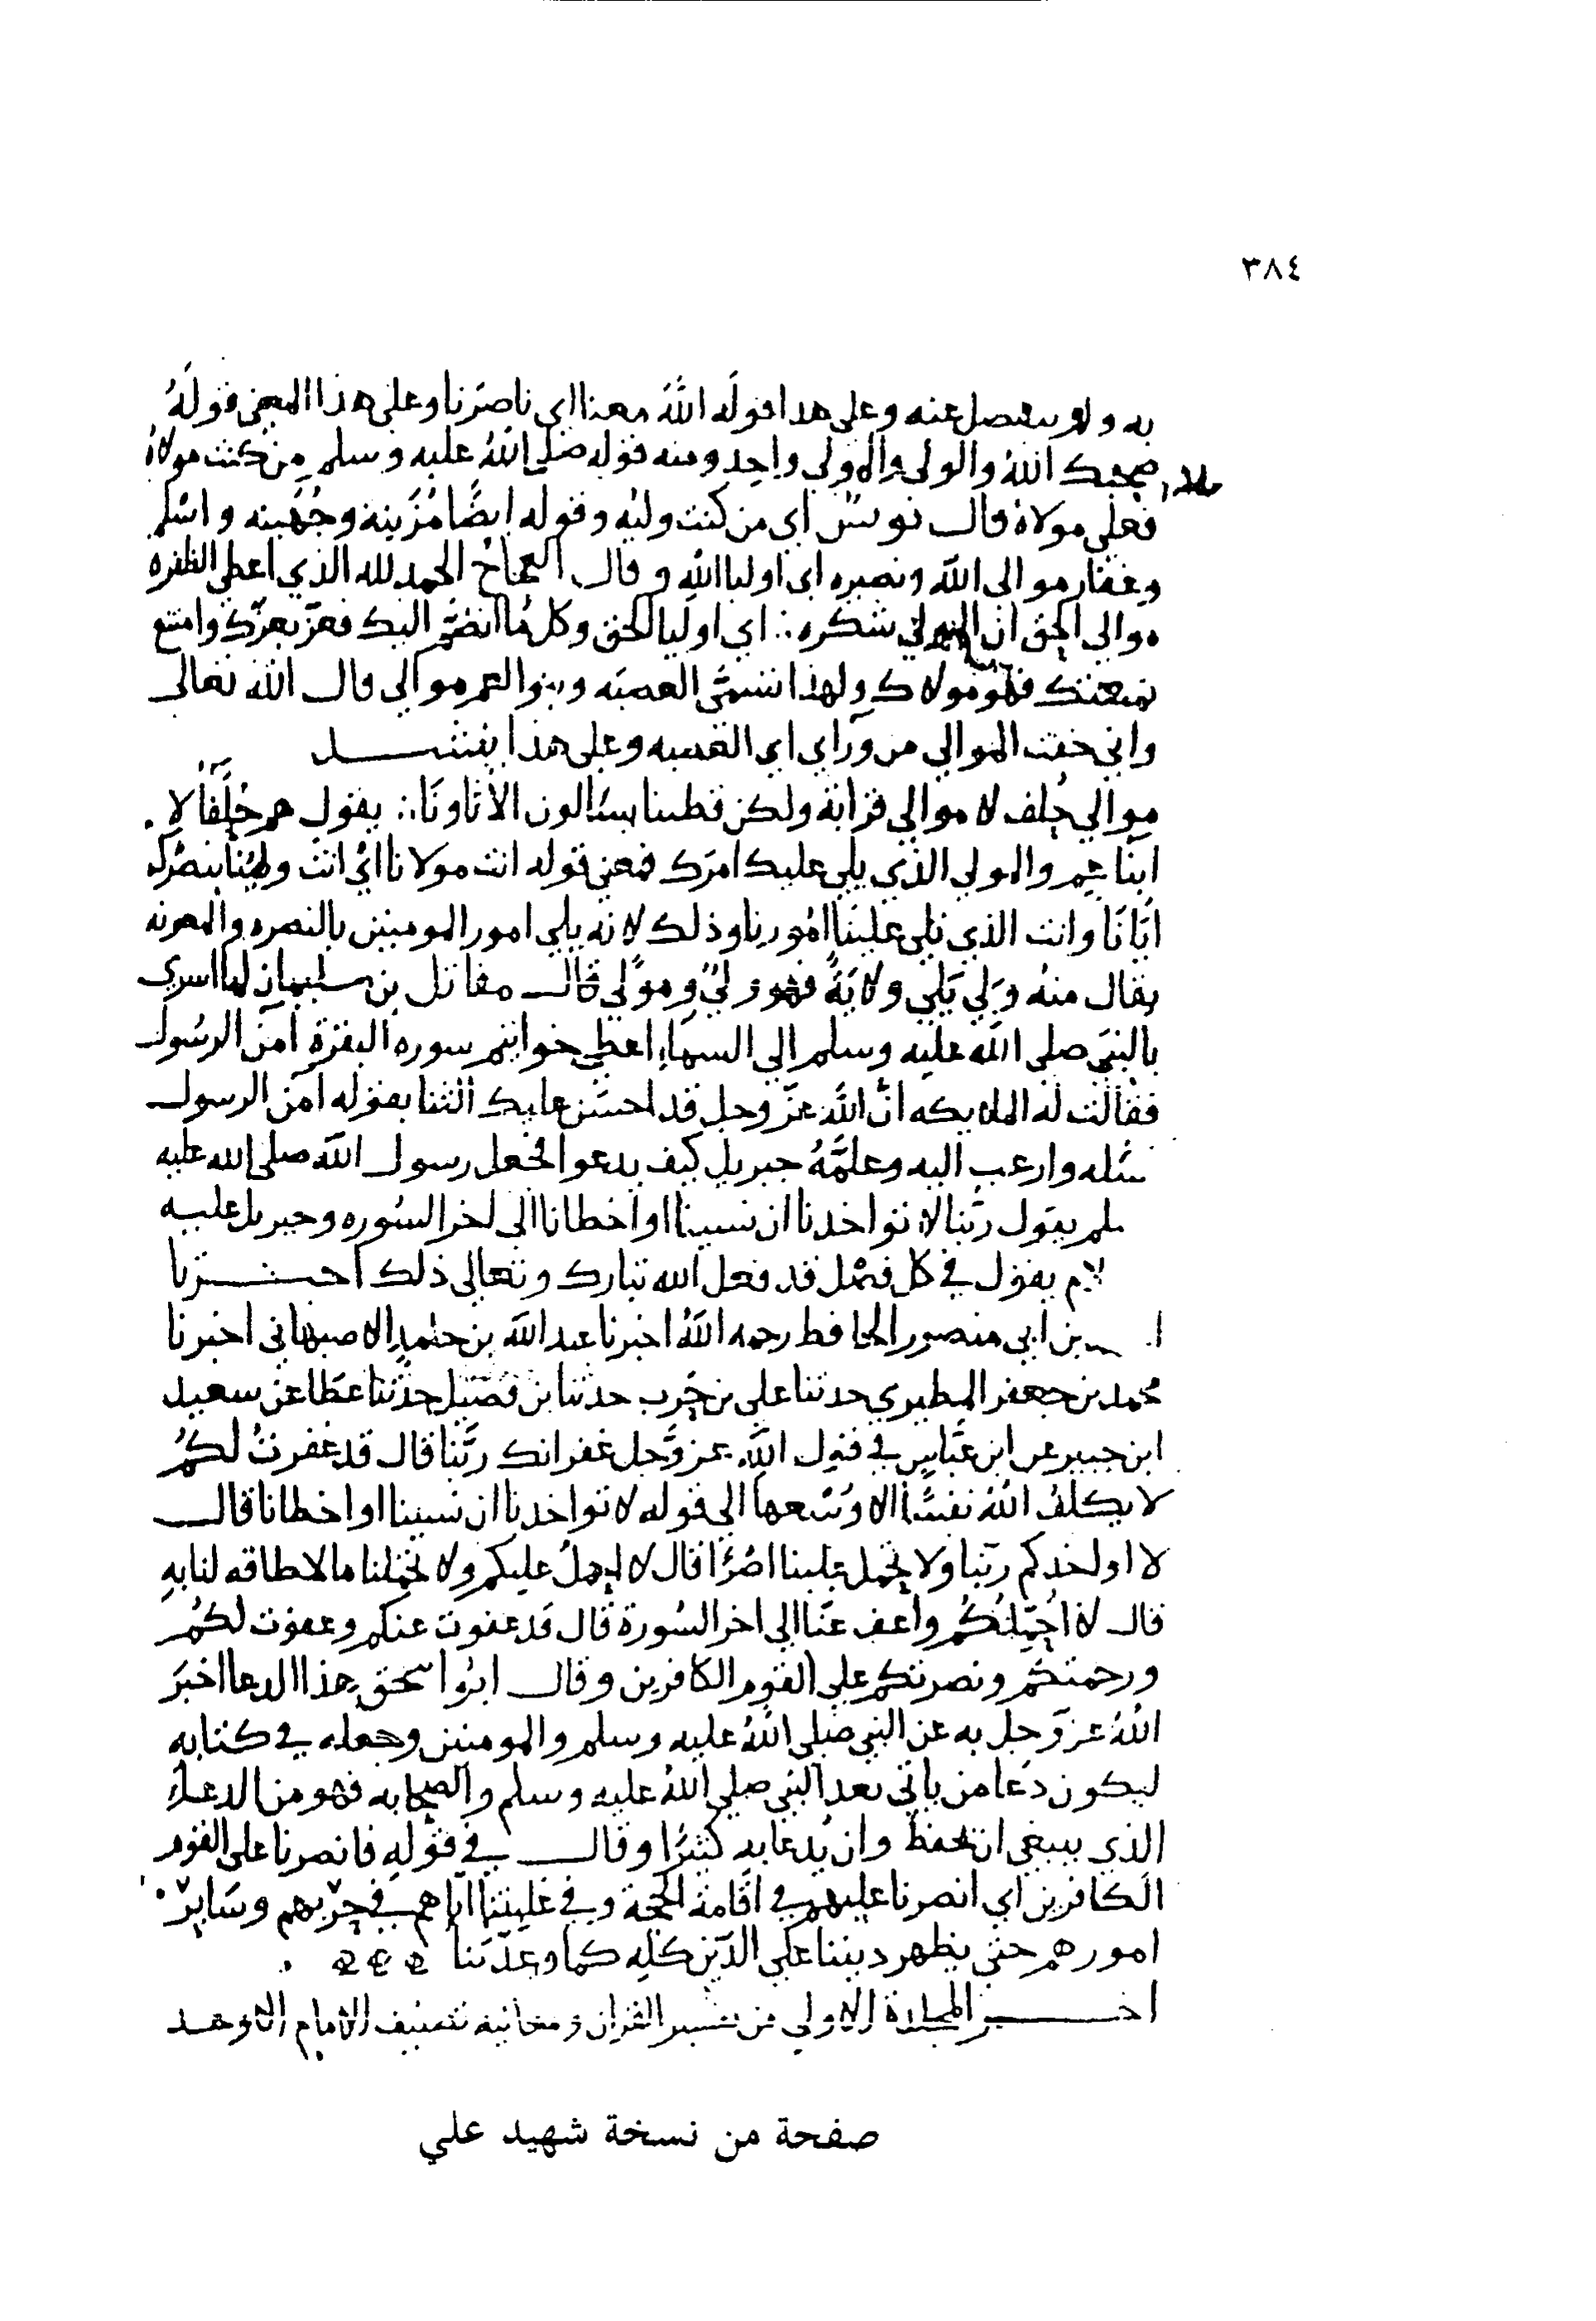 ٣٨٤
به ولم ينفصل عنه وعلى هدا قوله الله معنا اي ناصرنا وعلى هذا المعنى قوله
صحبك الله والولي والمولى واحد ومنه قوله صلى الله عليه وسلم من كنت مولاه
فعلي مولاه قال يونس اي من كنت وليه وقوله ايضا مُزَينة وجُهَينه واسلم
وغفار موالى الله ونصيره اي اوليا الله وقال العجاج الحمد لله الذي اعطى الظفره
موالي الحق ان المولى شكره ∴ اي اوليا الحق وكل ما انضم اليك فعز بعزك وامتنع
بمنعتك فهو مولاك ولهذا تسمى العصبه وبنو العم موالي قال الله تعالى
واني خفت الموالي من ورآي اي العصبه وعلى هذا ينشد
موالي حلف لا موالي قرابة ولكن قطينا يسالون الاتاونا ∴ يقول هم حلفا لا
ابنا عم والمولي الذي يلي عليك امرك فمعنى قوله انت مولانا اي انت ولينا بنصرك
ايانا وانت الذي تلي علينا امورنا وذلك لانه يلي امور المومنين بالنصره والمعونه
يقال منه وَلي يَلي ولايةً فهو وليٌ ومولًى قال مقاتل بن سليمان لما اسري
بالنبي صلى الله عليه وسلم الي السماء اعطي خواتيم سوره البقرة امن الرسول
فقالت له الملايكه ان الله عز وجل قد احسن عليك الثنا بقوله امن الرسول
سله وارعب اليه وعلمه جبريل كيف يدعوا فجعل رسول الله صلى الله عليه
سلم يقول ربنا لا تواخدنا ان نسينا او اخطانا الى اخر السوره وجبريل عليه
لام يقول في كل فصل قد فعل الله تبارك وتعالى ذلك اخبرنا
بن ابي منصور الحافظ رحمه الله اخبرنا عبد الله بن حامد الاصبهاني اخبرنا
محمد بن جعفر المطيري حدثنا علي بن حرب حدثنا بن فضيل حدثنا عطا عن سعيد
ابن جبير عن ابن عباس في قول الله عز وجل غفرانك ربنا قال قد غفرت لكم
لا يكلف الله نفسًا الا وسعها الى قوله لا تواخدنا ان نسينا او اخطانا قال
لا اواخدكم ربنا ولا تحمل علينا اصرًا قال لا احمل عليكم ولا تحملنا ما لا طاقه لنا به
قال لا احملكم واعف عنا الى اخر السورة قال قد عفوت عنكم وعفوت لكم
ورحمتكم ونصرتكم على القوم الكافرين وقال ابوا سحق هذا الدعا اخبر
الله عز وجل به عن النبي صلى الله عليه وسلم والمومنين وجعله في كتابه
ليكون دعا من ياتي بعد النبي صلى الله عليه وسلم والصحابه فهو من الدعاء
الذي ينبغي ان يحفظ وان يدعا به كثيرًا وقال في قوله فانصرنا على القوم
الكافرين اي انصرنا عليهم في اقامة الحجة وفي غلبتنا اياهم في حربهم وساير
امورهم حتى يظهر ديننا على الدين كله كما وعدتنا
اخر المجلدة الاولي من تفسير القران ومعانيه تصنيف الامام الاوحد
صفحة من نسخة شهيد علي